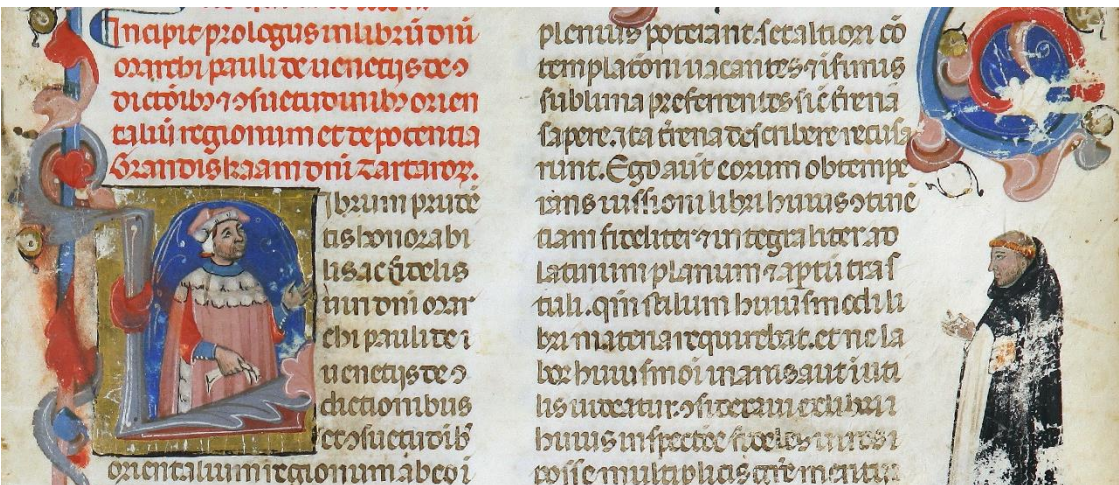 Incipit prologus in librū dnī
marchi pauli de uenetijs de ↄ
dictōibꝫ ⁊ ↄsuetudinibꝫ orien
taliū regionum et de potentia
Grandis kaam dnī Tartaroꝝ.
Librum prudē
tis honorabi
lis ac fidelis
uiri dnī mar
chi pauli de
uenetijs de ↄ
dictionibus
et ↄsuetudībꝰ
orientalium regionum ab eo
plenius poterant. set altiori cō
templatōni uacantes ⁊
sublima preferentes sic t̄rena
sapere. ita t̄rena describere recusa
runt. Ego aūt eorum obtempe
rans iussioni libri huius ↄtinē
tiam fideliter ⁊ integraliter ad
latinum planum ⁊ aptū trās
tuli. qm̄ stilum huiusmodi li
bri materia requirebat. et ne la
bor huiusmoi inanis aut inuti
lis uideatur. ↄsideraui ex libri
huius inspectōe fideles uiros
posse multiplicis